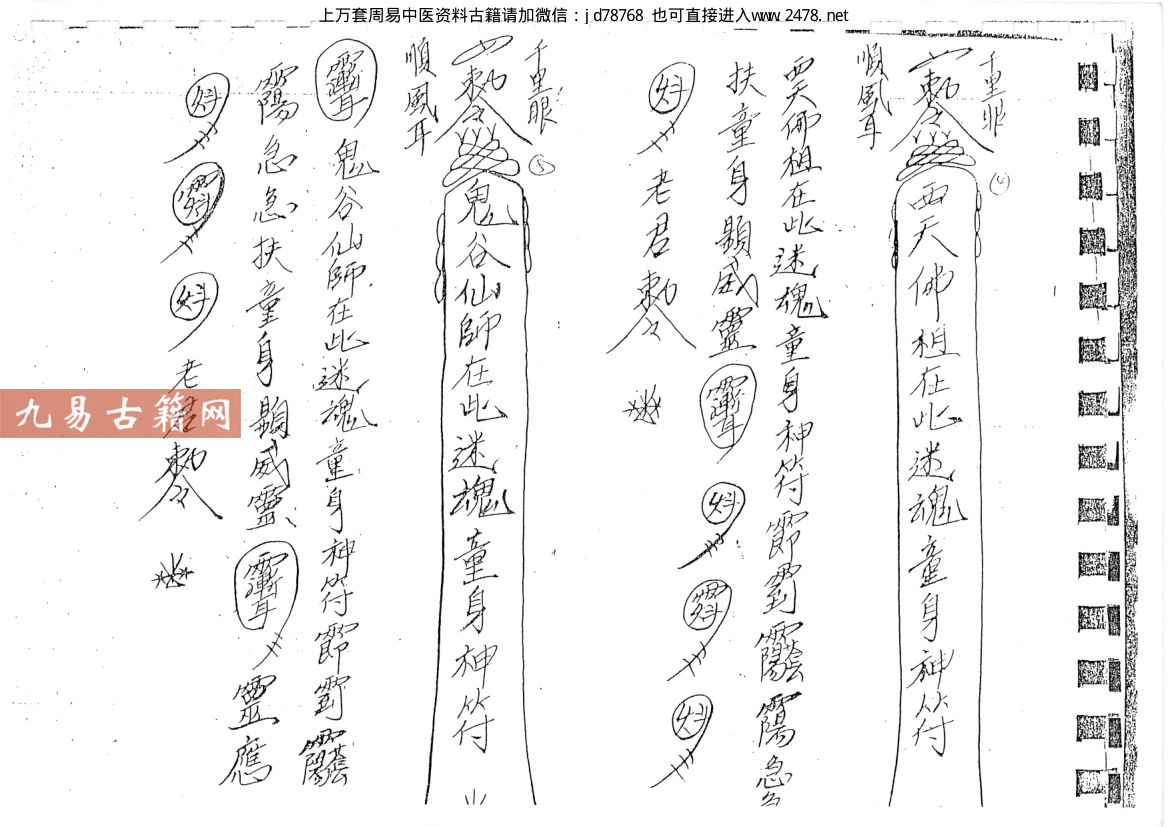 上万套周易中医资料古籍请加微信：jd78768 也可直接进入www.2478.net
千里眼
勅令
順風耳
④
西天佛祖在此迷魂童身神符
西天佛祖在此迷魂童身神符
急急
扶童身顯威靈
老君勅令
千里眼
勅令
順風耳
⑤
鬼谷仙師在此迷魂童身神符
鬼谷仙師在此迷魂童身神符
急急扶童身顯威靈
靈應
老君勅令
九易古籍网